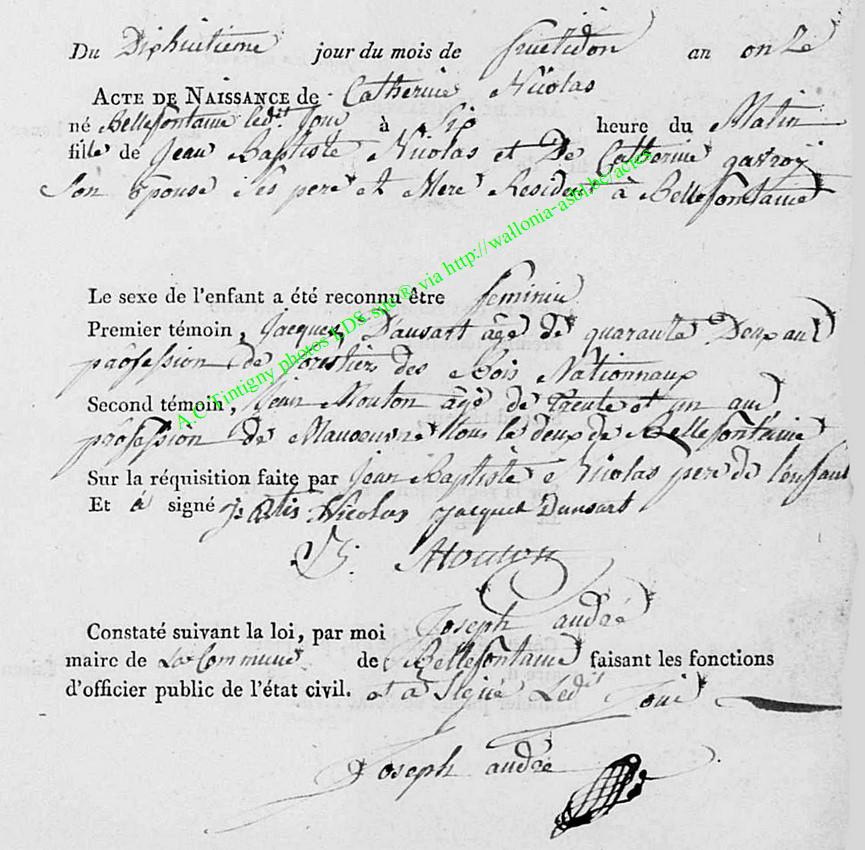 Du Dixhuitieme jour du mois de fructidor an onze
ACTE DE NAISSANCE de Catherine Nicolas
né Bellefontaine ledit Jour à Six heure du Matin
fille de Jean Baptiste Nicolas et De Catherine gavroy
Son Epouse Ses pere et Mere Resident à Bellefontaine
Le sexe de l'enfant a été reconnu être feminin
Premier témoin, Jacques Dansart âgé de quarante Deux ans
profession de forestier des Bois Nationnaux
Second témoin, Jean Mouton âgé de trente et un ans
profession de Manoeuvre tous le deux de Bellefontaine
Sur la réquisition faite par Jean Baptiste Nicolas pere de l'enfant
Et à signé Nicolas jacque Dunsart
Mouton
Constaté suivant la loi, par moi Joseph andré
maire de La Commune de Bellefontaine faisant les fonctions
d'officier public de l'état civil. et à Signé Ledit Jour
Joseph andré
A.C. Tintigny photos EDS. spe® via http://wallonia-asbl.be/actes